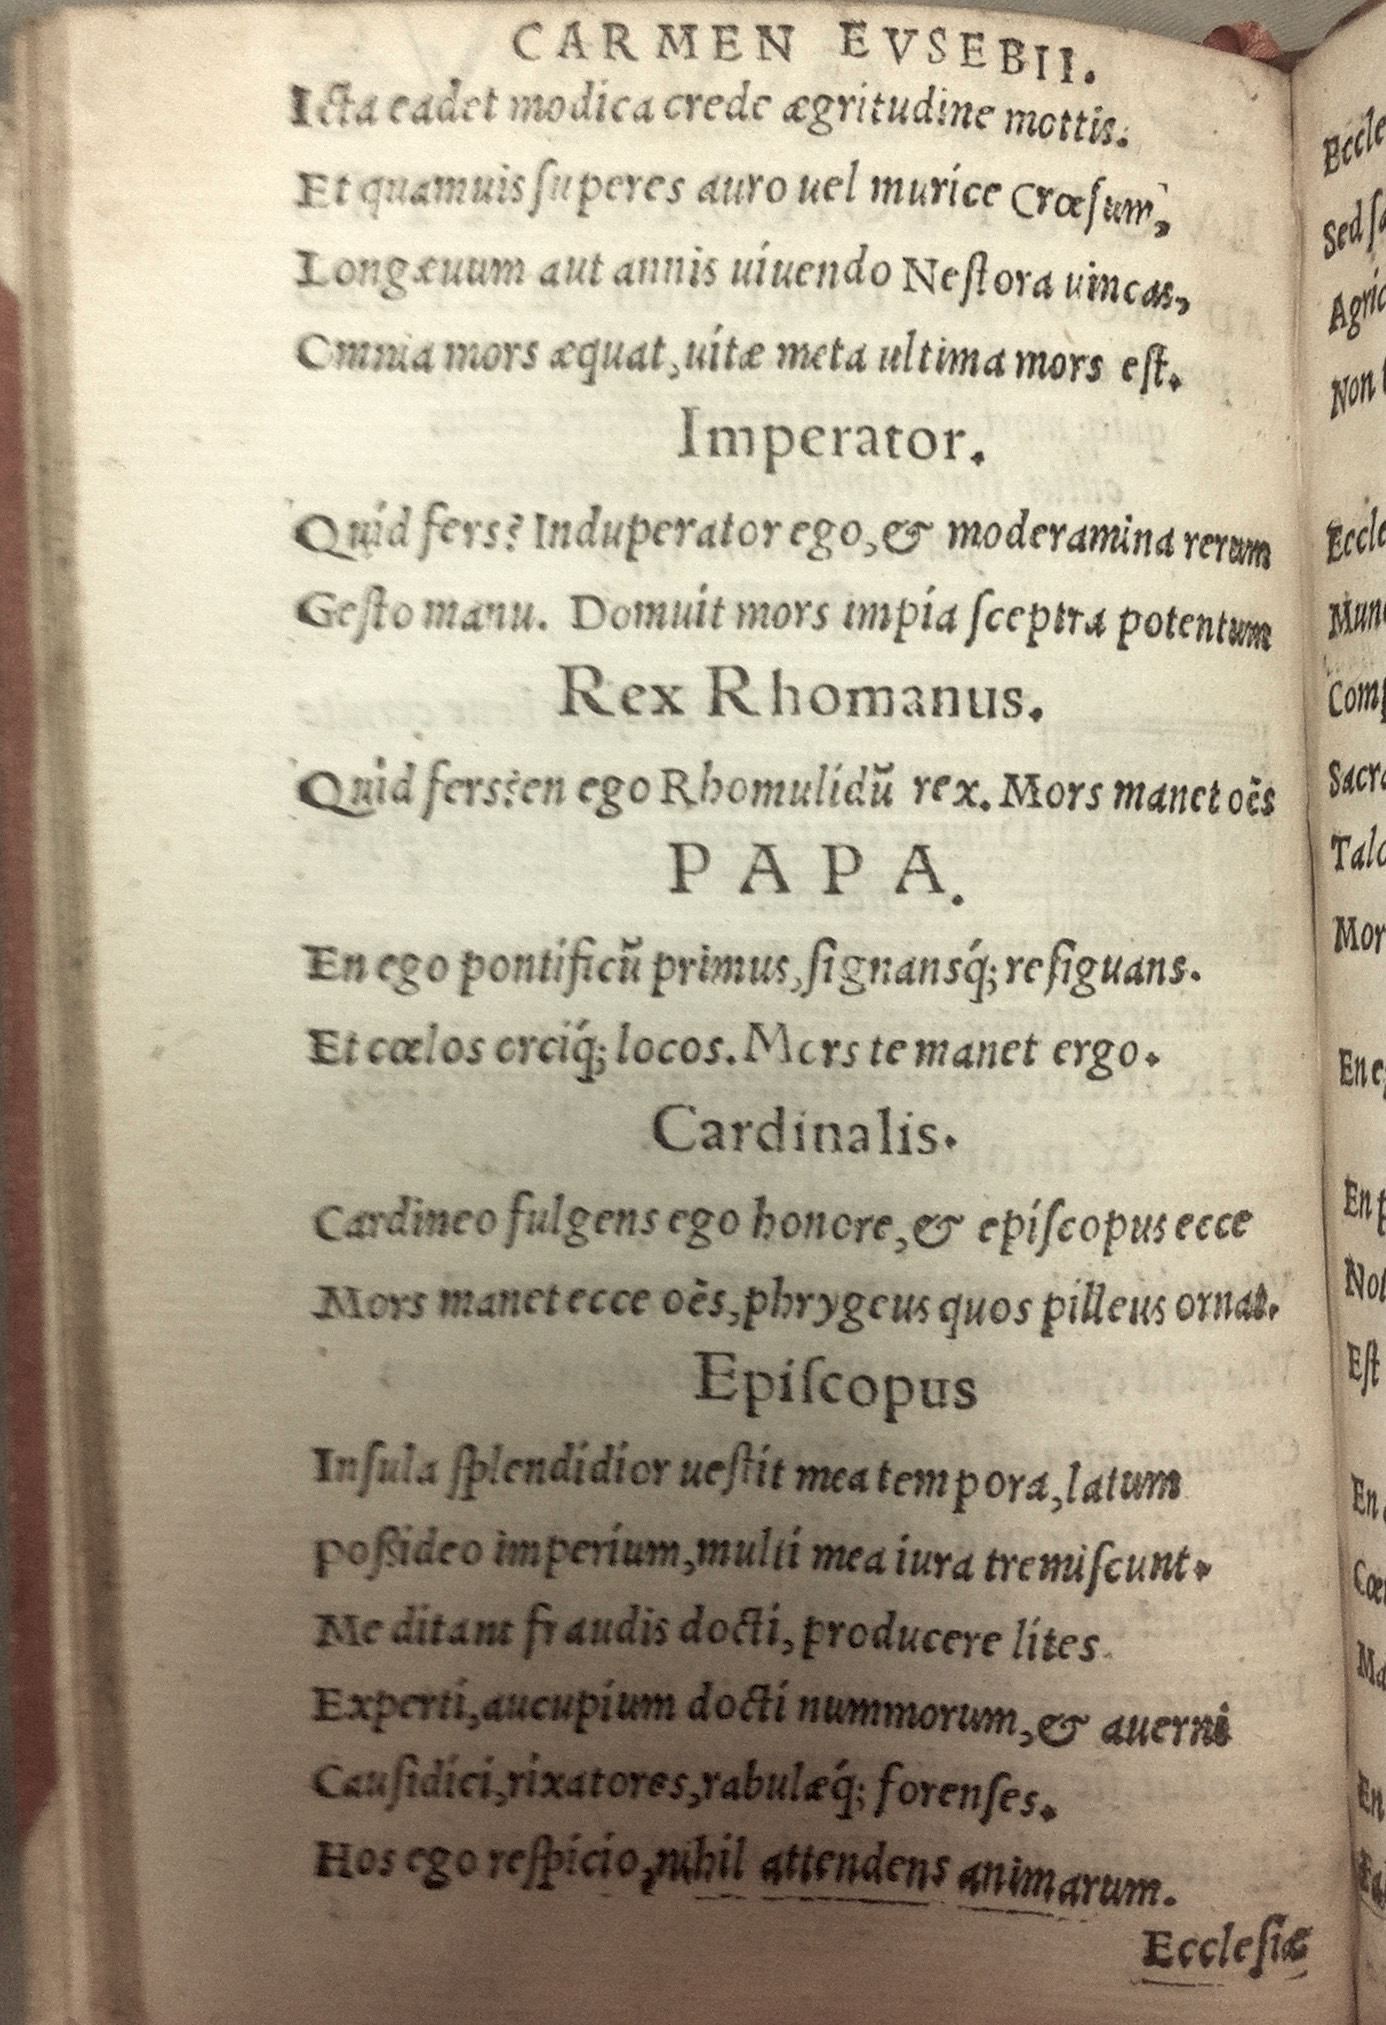 CARMEN EVSEBII.
Icta cadet modica crede ægritudine mottis.
Et quamuis ſuperes auro uel murice Crœſum,
Longæuum aut annis uiuendo Neſtora uincas,
Omnia mors æquat, uitæ meta ultima mors eſt.
Imperator.
Quid fers? Induperator ego, & moderamina rerum
Geſto manu. Domuit mors impia ſceptra potentum
Rex Rhomanus.
Quid fers? en ego Rhomulidũ rex. Mors manet oẽs
PAPA.
En ego pontificũ primus, ſignansq́; reſiguans.
Et cœlos orciq́; locos. Mors te manet ergo.
Cardinalis.
Cardineo fulgens ego honore, & epiſcopus ecce
Mors manet ecce oẽs, phrygeus quos pilleus ornat.
Epiſcopus
Inſula ſplendidior ueſtit mea tempora, latum
poſsideo imperium, multi mea iura tremiſcunt.
Me ditant fraudis docti, producere lites
Experti, aucupium docti nummorum, & auerni
Cauſidici, rixatores, rabulæq́; forenſes.
Hos ego reſpicio, nihil attendens animarum.
Eccleſiæ
Eccle
Sed ſa
Agric
Non
Eccle
Mun
Comp
Sacra
Mor
En
En
Eſt
En
En